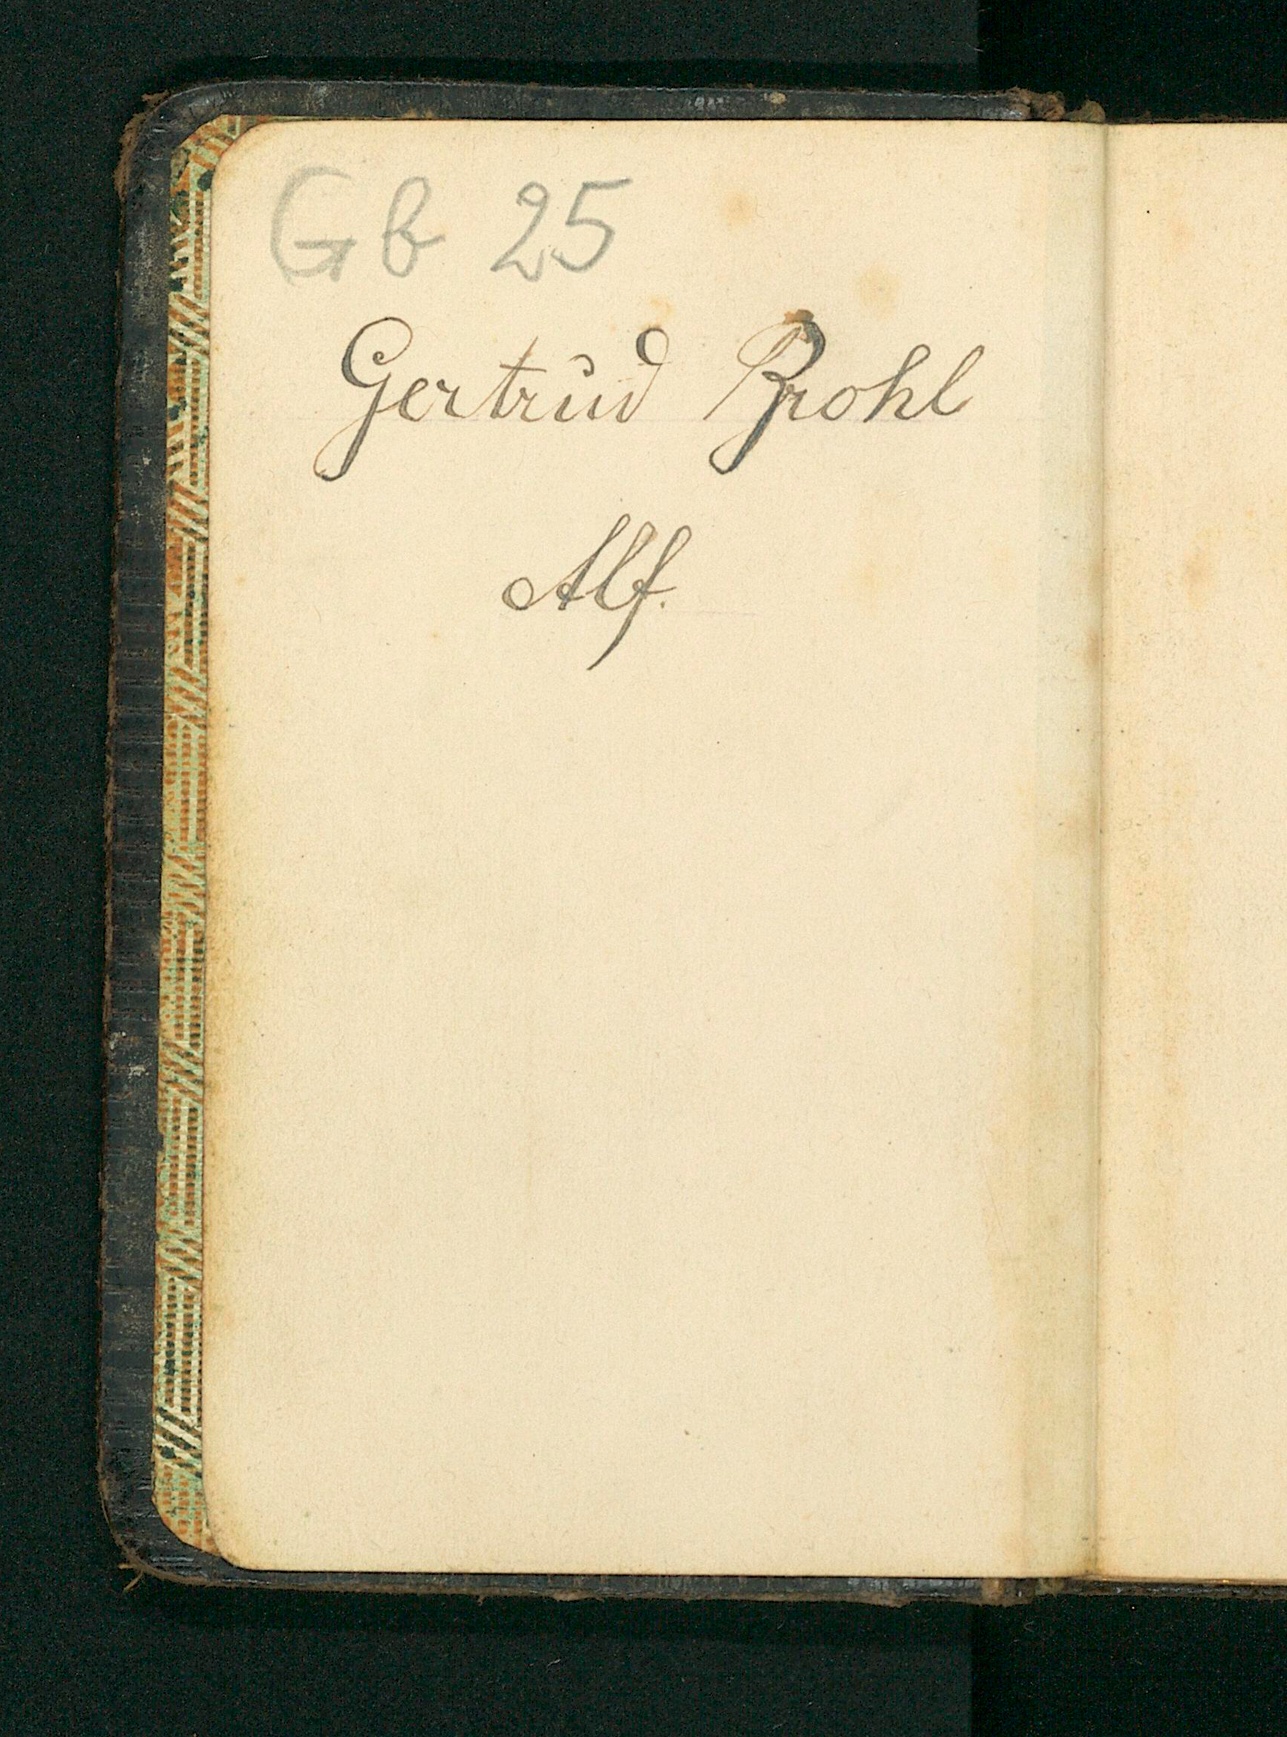 Gb 25
Gertrud Brohl
Alf.